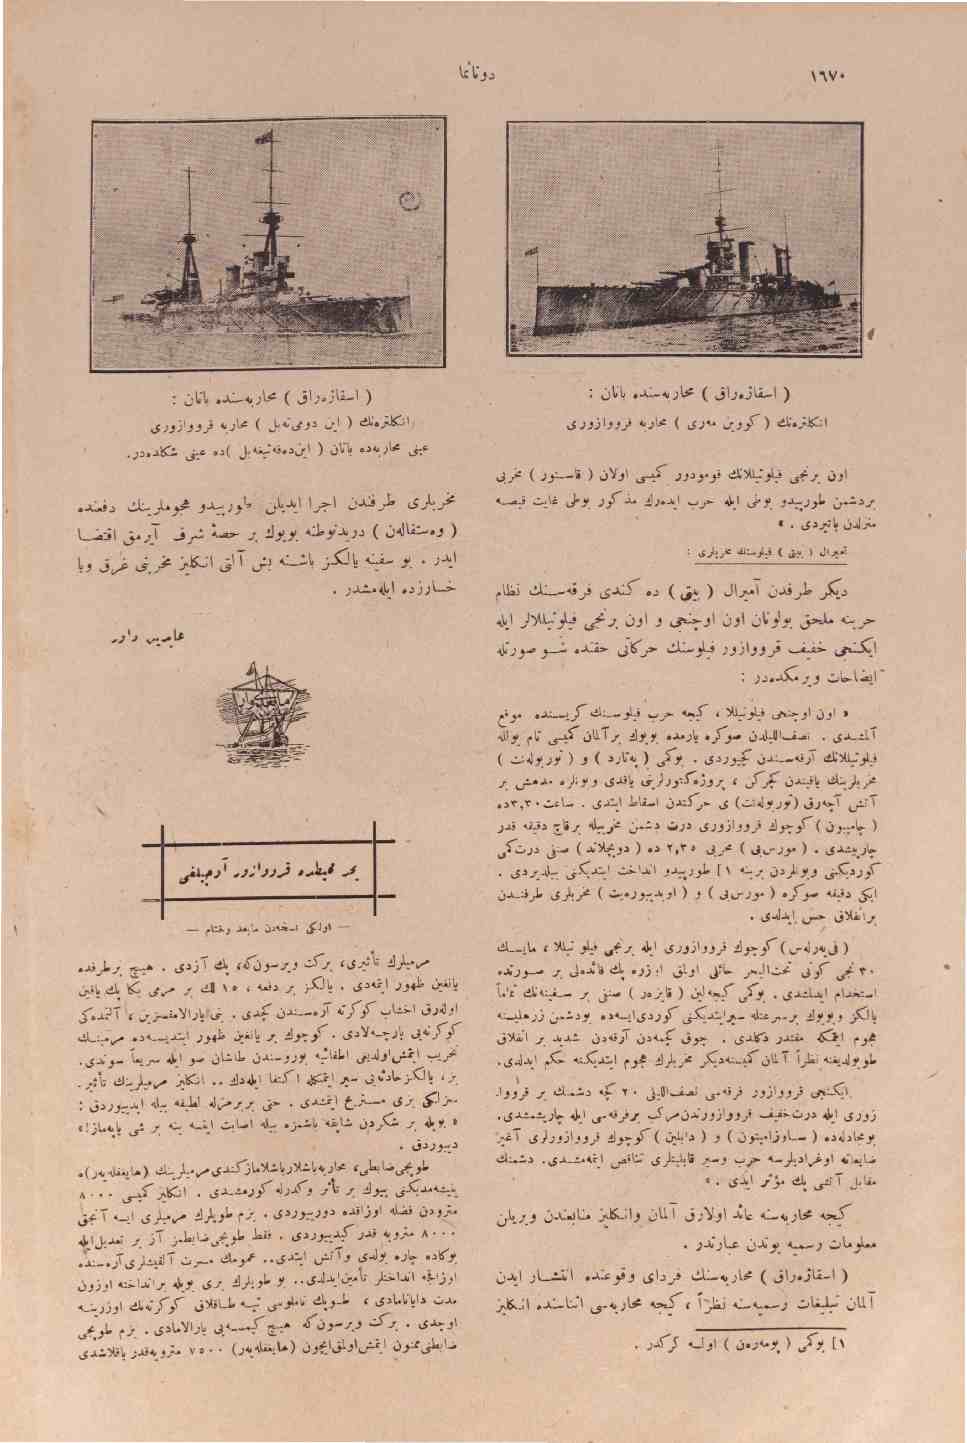 ١٦٧٠
دوناتما
( اسقاژه‌راق ) محاربه‌سنده باتان :
انكلتره‌نك ( كووين مه‌رى ) محاربه قرووازورى
اون برنجى فيلوتيللانك قومودور كميسى اولان ( قاستور ) مخربى
بردشمن طورپيدو بوطى ايله حرب ايده‌رك مذكور بوطى غايت قيصه
منزلدن باتيردى . »
آميرال ( بيتى ) فيلوسنك مخربلرى :
ديكر طرفدن آميرال ( بيتى ) ده كندى فرقه‌سنك نظام
حربنه ملحق بولونان اون اوچنجى و اون برنجى فيلوتيللالر ايله
ايكنجى خفيف قرووازور فيلوسنك حركاتى حقنده شو صورتله
ايضاحات ويرمكده‌در :
« اون اوچنجى فيلوتيللا ، كيجه حرب فيلوسنك كريسنده موقع
آلمشدى . نصف‌الليلدن صوكره يارمده بويوك بر آلمان كميسى تام يولله
فيلوتيللانك آرقه‌سندن كچيوردى . بوكمى ( په‌تارد ) و ( توربوله‌نت )
مخربلرينك ياقيندن كچركن ، پروژه‌كتورلرينى ياقدى وبونلره مدهش بر
آتش آچه‌رق (توربوله‌نت) ى حركتدن اسقاط ايتدى . ساعت ٣,٣٠ده
( چامپيون ) كوچوك قرووازورى درت دشمن مخربيله برقاچ دقيقه قدر
چارپيشدى . ( مورس‌بى ) مخربى ٢,٣٥ ده ( دويچلاند ) صنفى درت كمى
كورديكنى وبونلردن برينه [١ طورپيدو انداخت ايتديكنى بيلديردى .
ايكى دقيقه صوكره ( مورس‌بى ) و ( اوبديورەيت ) مخربلرى طرفندن
برانفلاق حس ايدلدى .
( فى‌يه‌رله‌س ) كوچوك قرووازورى ايله برنجى فيلوتيللا ، مايسك
٣٠ نجى كونى تحت‌البحر حائلى اولمق اوزره پك فائده‌لى بر صورتده
استخدام ايدلمشدى . بوكمى كيجه‌لين ( قايزه‌ر ) صنفى بر سفينه‌نك تماماً
يالكز وبويوك برسرعتله سيرايتديكنى كوردى‌ايسه‌ده بودشمن زرهليسنه
هجوم ايتمكه مقتدر دكلدى . چوق كچمه‌دن آرقه‌دن شديد بر انفلاق
طويولديغنه نظراً آلمان كميسنه‌ديكر مخربلرك هجوم ايتديكنه حكم ايدلدى.
ايكنجى قرووازور فرقه‌سى نصف‌الليلى ٢٠ كچه دشمنك بر قرووا
زورى ايله درت خفيف قرووازورندن مركب برفرقه‌سى ايله چارپشمشدى.
بومجادله‌ده ( ساوزامپتون ) و ( دابلين ) كوچوك قرووازورلرى آغير
ضايعاته اوغراديلرسه حرب وسير قابليتلرى تناقص ايتمه‌مشدى. دشمنك
مقابل آتشى پك مؤثر ايدى . »
كيجه محاربه‌سنه عائد اولارق آلمان وانكليز منابعندن ويريلن
معلومات رسميه بوندن عبارتدر .
( اسقاژه‌راق ) محاربه‌سنك فرداى وقوعنده انتشار ايدن
آلمان تبليغات رسميه‌سنه نظراً ، كيجه محاربه‌سى اثناسنده انكليز
[١ بوكمى ( پومه‌رەن ) اولسه كركدر .
( اسقاژه‌راق ) محاربه‌سنده باتان :
انكلتره‌نك ( اين دومى‌ته‌بل ) محاربه قرووازورى
عينى محاربه‌ده باتان ( اين‌ده‌فه‌تيغه‌بل )ده عينى شكلده‌در.
مخربلرى طرفندن اجرا ايديلن طورپيدو هجوملرينك دفعنده
( وه‌ستفاله‌ن ) دريدنوطنه بويوك بر حصهٔ شرف آيرمق اقتضا
ايدر . بو سفينه يالكز باشنه بش آلتى انكليز مخربنى غرق ويا
خسارزده ايله‌مشدر .
عابدين داور
بحر محيطده قرووازور آرجيلغى
— اولكى نسخه‌دن مابعد وختام —
مرميلرك تأثيرى، بركت ويرسون‌كه، پك آزدى . هيچ برطرفده
يانغين ظهور ايتمه‌دى . يالكز بر دفعه ، ١٥ لك بر مرمى بكا پك ياقين
اوله‌رق اخشاب كوكرته آره‌سندن كچدى .
كوكرته‌يى پارچه‌لادى . كوچوك بر يانغين ظهور ايتديسه‌ده مرمينك
تخريب ايتمش‌اولديغى اطفائيه بوروسندن طاشان صو ايله سريعاً سوندى.
بز، يالكزحادثه‌يى سير ايتمكله اكتفا ايله‌دك .. انكليز مرميلرينك تأثير-
سزلكى بزى مستريح ايتمشدى . حتى بربرمزله لطيفه بيله ايدييوردق :
« بويله بر شكردن شاپقه باشمزه بيله اصابت ايتسه ينه بر شى ياپه‌ماز!»
دييوردق .
طوپجى‌ضابطى، محاربه‌باشلارباشلامازكندى مرميلرينك (هايغفله‌يه‌ر)ه
يتيشه‌مديكنى بيوك بر تأثر وكدرله كورمشدى . انكليز كميسى ٨٠٠٠
متره‌دن فضله اوزاقده دورييوردى . بزم طوپلرك مرميلرى ايسه آنجق
٨٠٠٠ متره‌يه قدر كيدييوردى . فقط طوپجى‌ضابطمز آز بر تعديل‌ايله
بوكاده چاره بولدى وآتش ايتدى.. عمومك مسرت آلقيشلرى آره‌سنده
اوزاقجه انداختلر تأمين‌ايدلدى.. بو طوپلرك برى بويله برانداخته اوزون
مدت دايانامادى ، طوپك ناملوسى تپه طاقلاق كوكرته‌نك اوزرينه
اوچدى . بركت ويرسون‌كه هيچ كيمسه‌يى يارالامادى. بزم طوپجى
ضابطى‌ممنون ايتمش‌اولمق‌ايچون (هايغفله‌يه‌ر) ٧٥٠٠ متره‌يه‌قدر ياقلاشدى